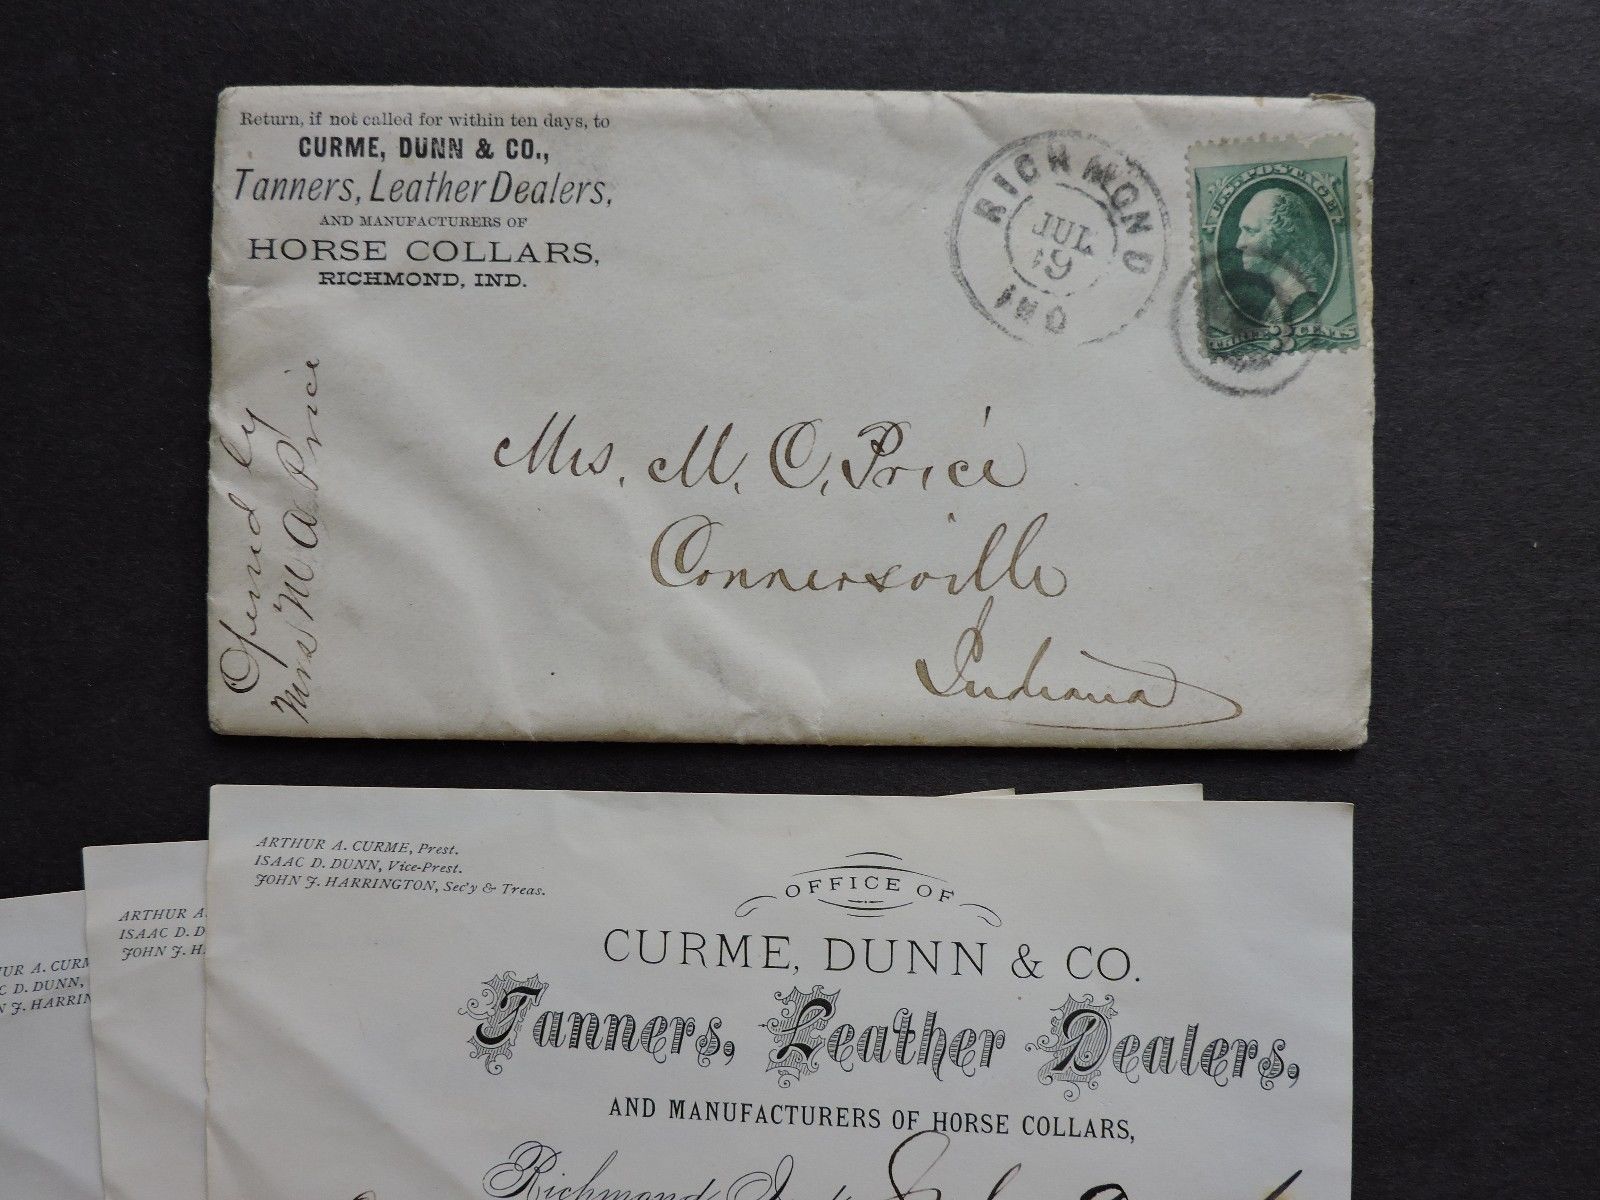 Return, if not called for within ten days, to
CURME, DUNN & CO.,
Tanners, Leather Dealers,
AND MANUFACTURERS OF
HORSE COLLARS,
RICHMOND, IND.
RICHMOND
JUL
19
IND
U.S. POSTAGE
THREE 3 CENTS
Mrs. M. O. Price
Connersville
Indiana
Opend by
Mrs M A Price
ARTHUR A. CURME, Prest.
ISAAC D. DUNN, Vice-Prest.
JOHN J. HARRINGTON, Sec'y & Treas.
OFFICE OF
CURME, DUNN & CO.
Tanners, Leather Dealers,
AND MANUFACTURERS OF HORSE COLLARS,
Richmond, Ind.
ARTHUR A.
ISAAC D. D
JOHN J. H
UR A. CURM
C D. DUNN,
N J. HARRIN